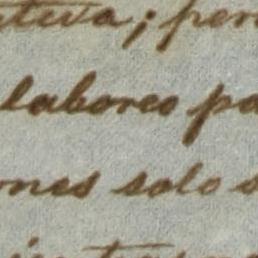 ativa; per
laboreo pa
ones solo s